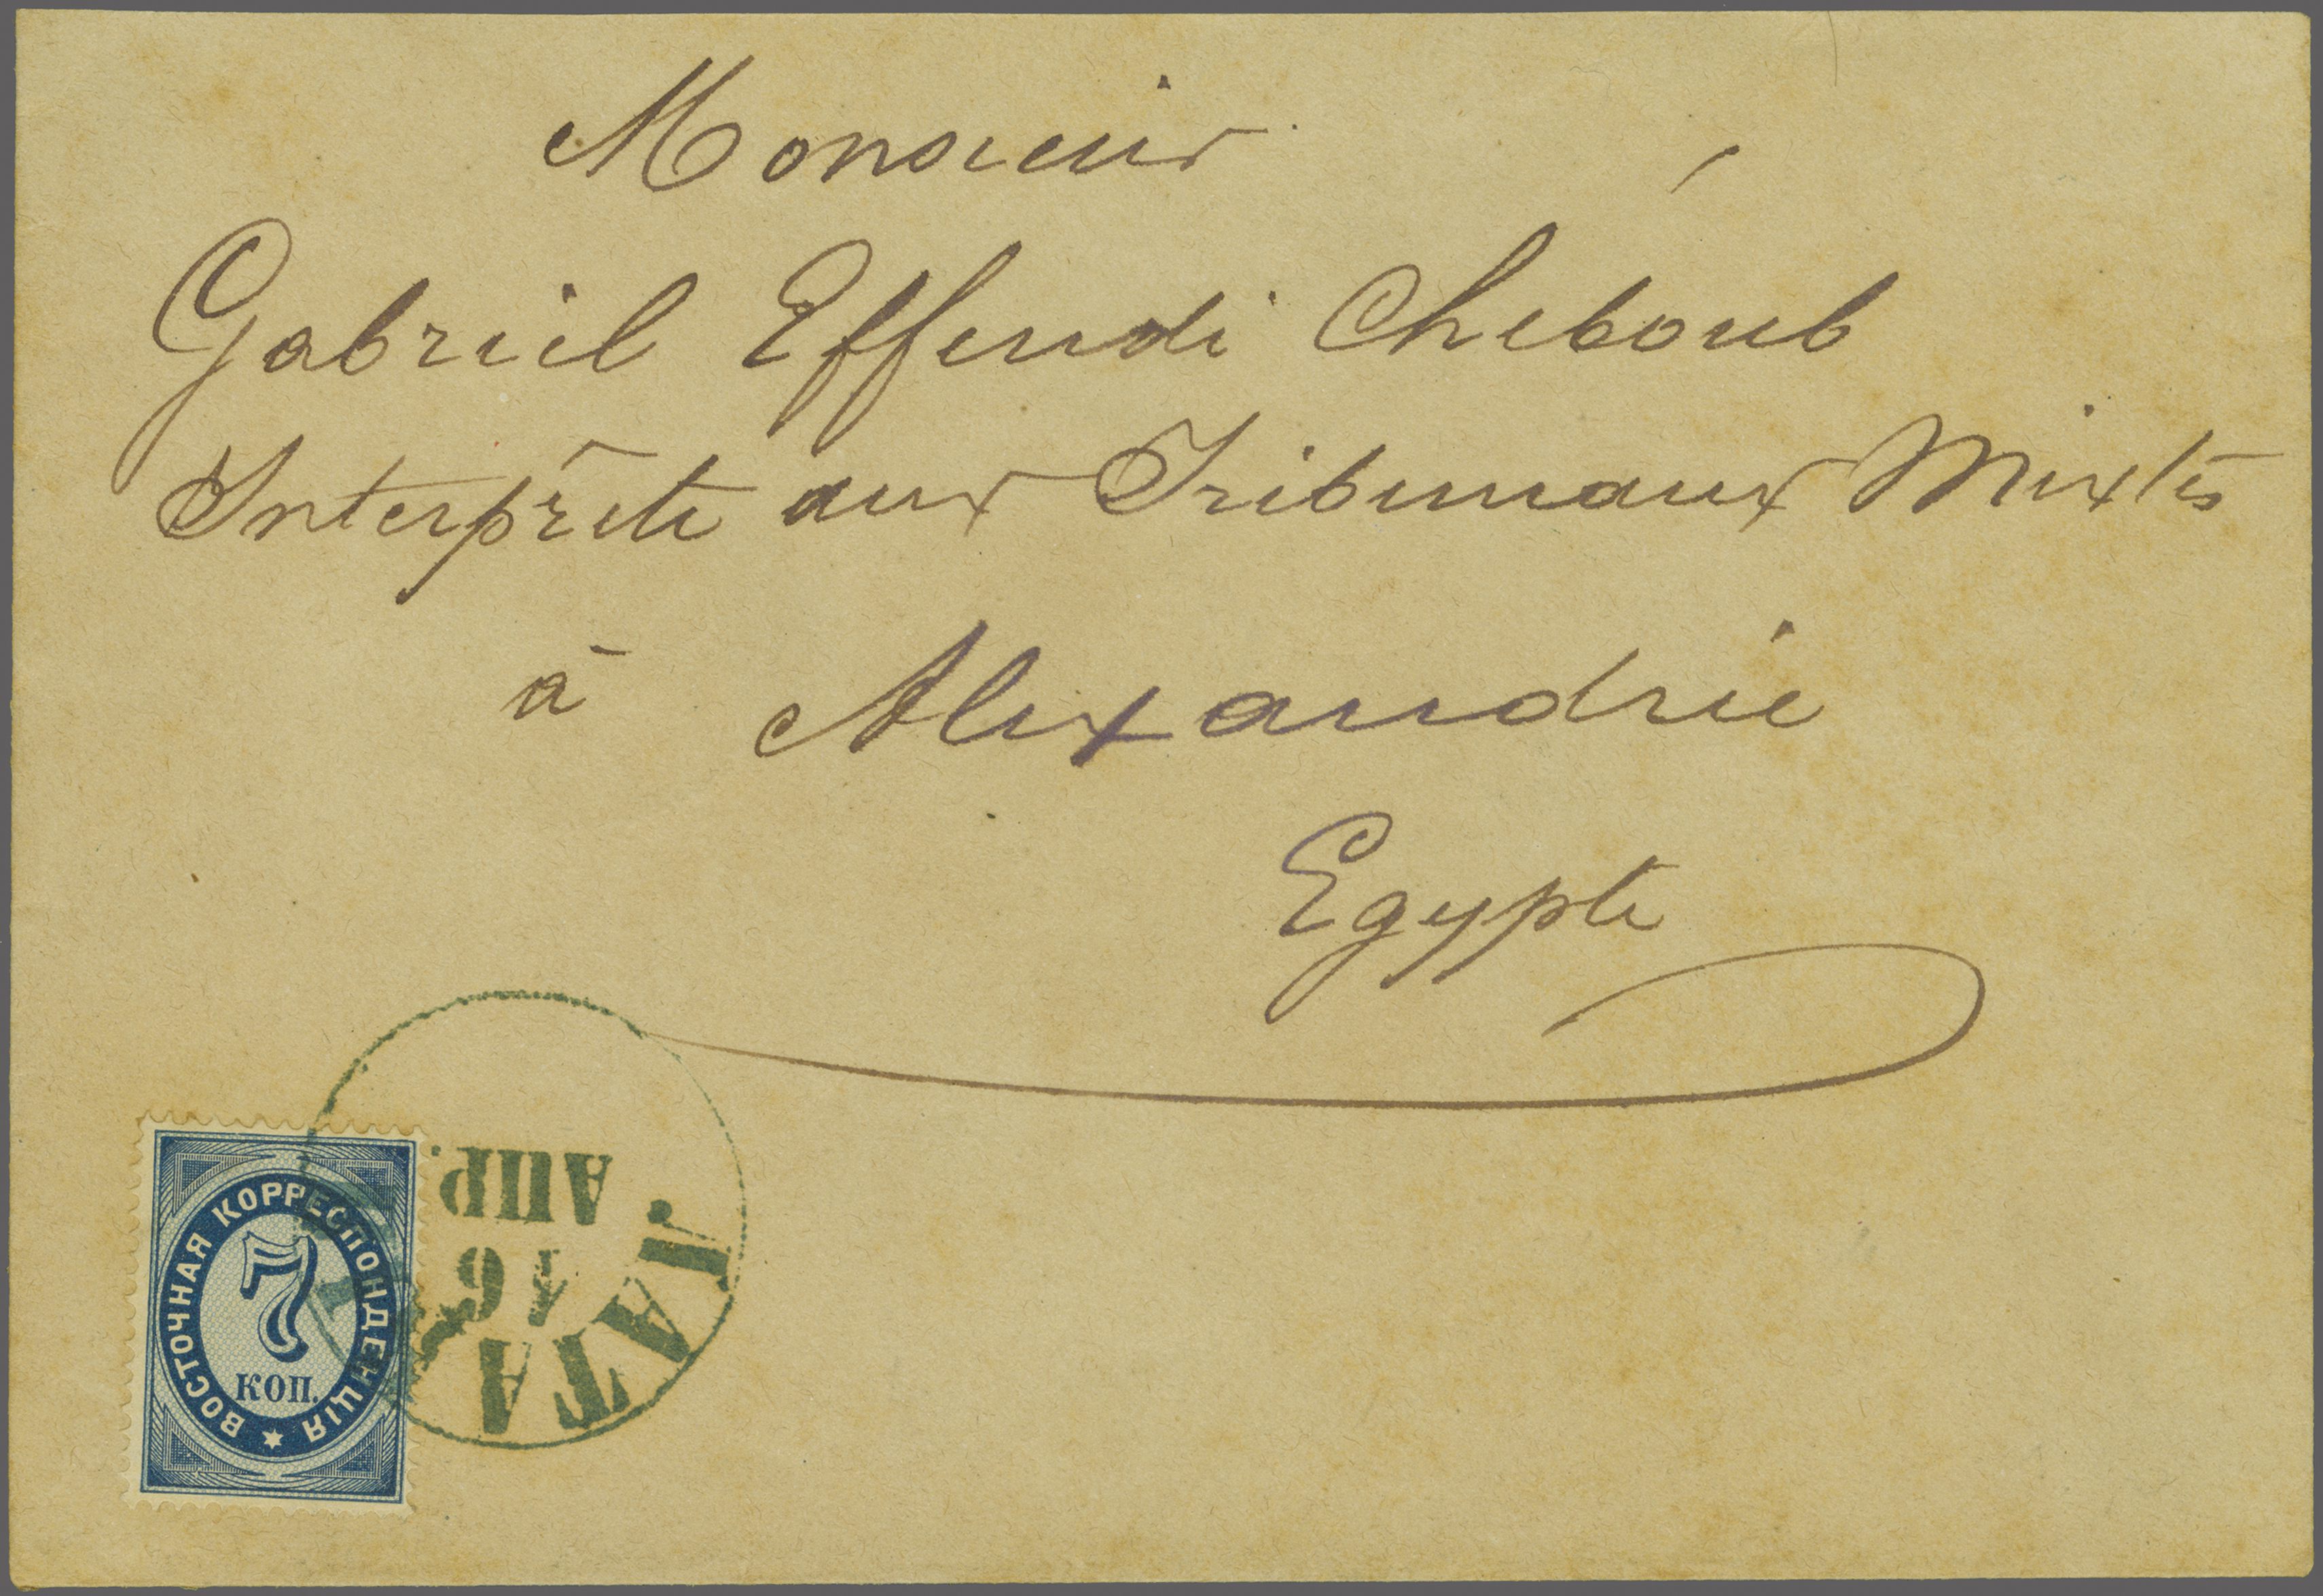 Monsieur
Gabriel Effendi Cheboub
Interprête aux Tribunaux Mixtes
à Alexandrie
Egypte
ВОСТОЧНАЯ КОРРЕСПОНДЕНЦІЯ
7
КОП.
ЛАТАК
16
АПР.